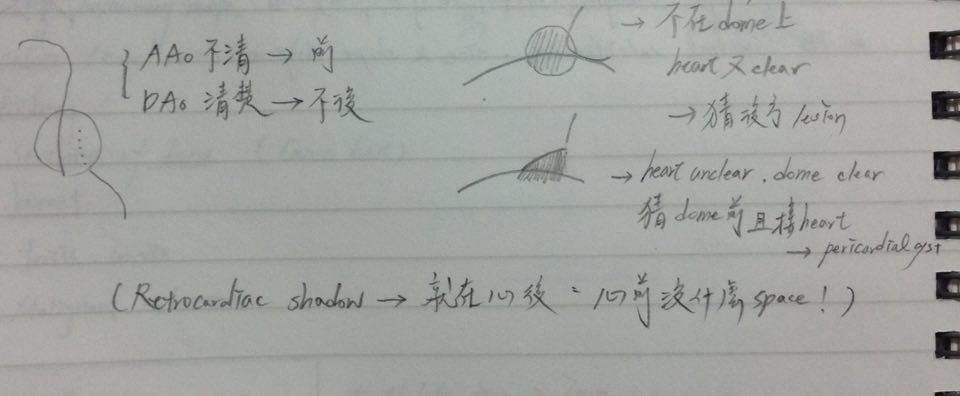 AAo 不清 → 前
DAo 清楚 → 不後
→ 不在 dome 上
heart 又 clear
→ 猜後方 lesion
→ heart unclear. dome clear
猜 dome 前 且接 heart
→ pericardial cyst
(Retrocardiac shadow → 就在心後 = 心前沒什麼 space!)